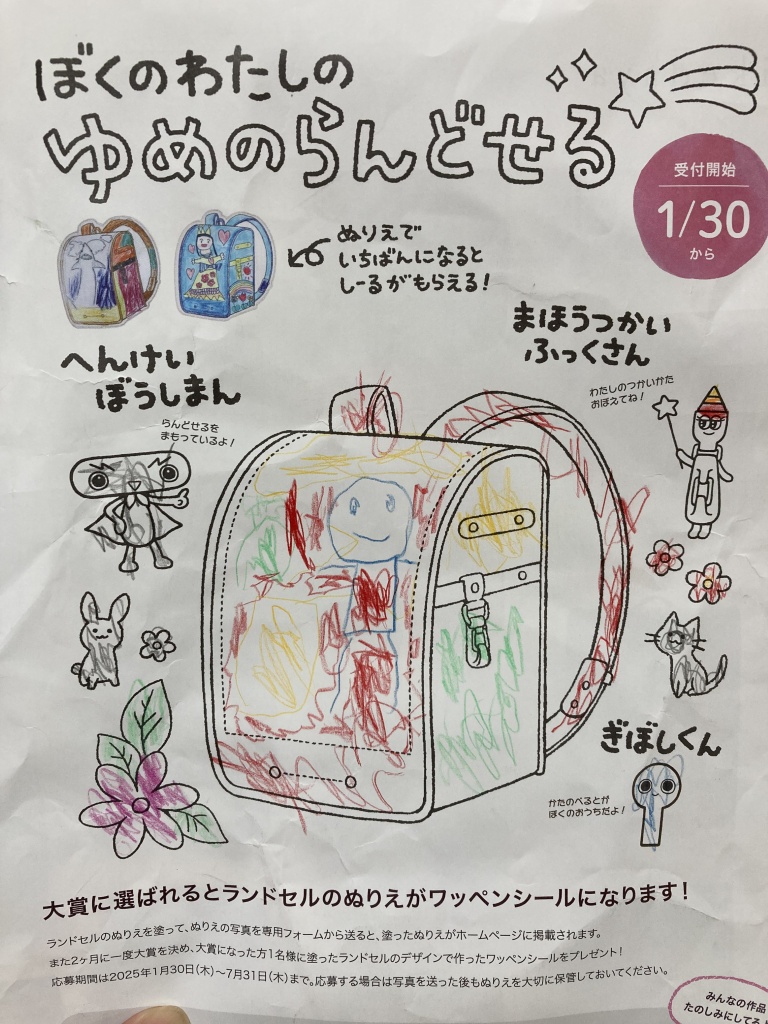 ぼくのわたしの
ゆめのらんどせる
受付開始
1/30
から
ぬりえで
いちばんになると
しーるがもらえる!
へんけい
ぼうしまん
らんどせるを
まもっているよ!
まほうつかい
ふっくさん
わたしのつかいかた
おぼえてね!
ぎぼしくん
かたのべるとが
ぼくのおうちだよ!
大賞に選ばれるとランドセルのぬりえがワッペンシールになります!
ランドセルのぬりえを塗って、ぬりえの写真を専用フォームから送ると、塗ったぬりえがホームページに掲載されます。
また2ヶ月に一度大賞を決め、大賞になった方1名様に塗ったランドセルのデザインで作ったワッペンシールをプレゼント!
応募期間は2025年1月30日(木)〜7月31日(木)まで。応募する場合は写真を送った後もぬりえを大切に保管しておいてください。
みんなの作品
たのしみにしてる